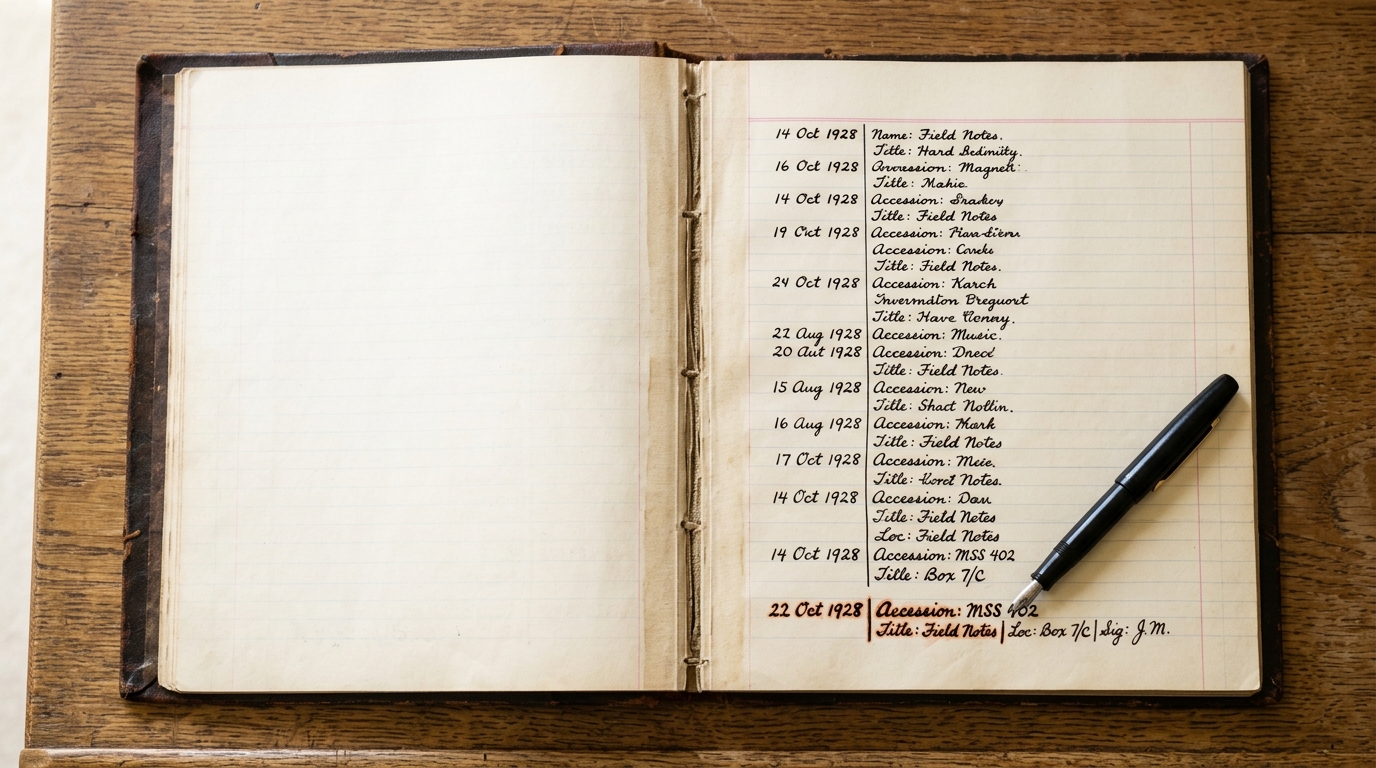 14 Oct 1928 Name: Field Notes.
Title: Hard
16 Oct 1928
Title: Mahic.
14 Oct 1928 Accession:
Title: Field Notes
19 Oct 1928 Accession:
Accession:
Title: Field Notes.
24 Oct 1928 Accession: Karch
Title: Have
22 Aug 1928 Accession: Music.
20 Aut 1928 Accession: Dned
Title: Field Notes.
15 Aug 1928 Accession: New
Title: Shact Notlin.
16 Aug 1928 Accession: Mark
Title: Field Notes
17 Oct 1928 Accession:
Title: Notes.
14 Oct 1928 Accession: Dan
Title: Field Notes
Loc: Field Notes
14 Oct 1928 Accession: MSS 402
Title: Box 7/C
22 Oct 1928 | Accession: MSS 402
Title: Field Notes | Loc: Box 7/C | Sig: J.M.